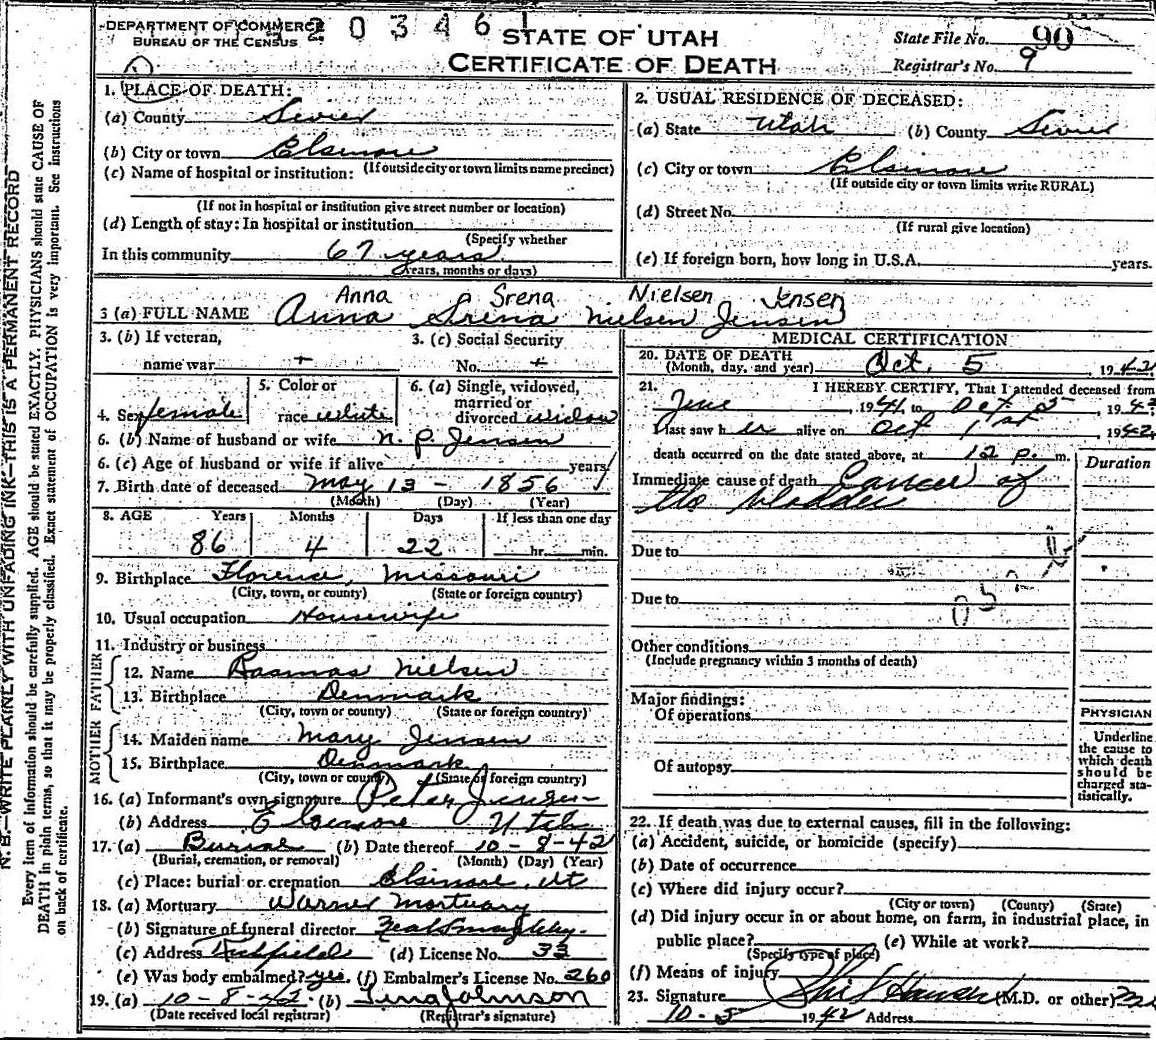 DEPARTMENT OF COMMERCE
BUREAU OF THE CENSUS
20346
STATE OF UTAH
CERTIFICATE OF DEATH
State File No. 90
Registrar's No. 9
N. B.—WRITE PLAINLY WITH UNFADING INK—THIS IS A PERMANENT RECORD
Every item of information should be carefully supplied. AGE should be stated EXACTLY. PHYSICIANS should state CAUSE OF
DEATH in plain terms, so that it may be properly classified. Exact statement of OCCUPATION is very important. See instructions
on back of certificate.
1. PLACE OF DEATH:
(a) County Sevier
(b) City or town Elsinore
(If outside city or town limits name precinct)
(c) Name of hospital or institution:
(If not in hospital or institution give street number or location)
(d) Length of stay: In hospital or institution
(Specify whether
In this community 67 years
years, months or days)
2. USUAL RESIDENCE OF DECEASED:
(a) State Utah (b) County Sevier
(c) City or town Elsinore
(If outside city or town limits write RURAL)
(d) Street No.
(If rural give location)
(e) If foreign born, how long in U.S.A. years.
Anna Srena Nielsen Jensen
3 (a) FULL NAME Anna Srena Nielsen Jensen
3. (b) If veteran,
name war
3. (c) Social Security
No.
4. Sex female
5. Color or
race white
6. (a) Single, widowed,
married or
divorced widow
6. (b) Name of husband or wife N. P. Jensen
6. (c) Age of husband or wife if alive years
7. Birth date of deceased May 13 - 1856
(Month) (Day) (Year)
8. AGE Years Months Days If less than one day
86 4 22 hr. min.
9. Birthplace Florence, Missouri
(City, town, or county) (State or foreign country)
10. Usual occupation Housewife
11. Industry or business
FATHER
12. Name Rasmas Nielsen
13. Birthplace Denmark
(City, town or county) (State or foreign country)
MOTHER
14. Maiden name Mary Jensen
15. Birthplace Denmark
(City, town or county) (State or foreign country)
16. (a) Informant's own signature Peter Jensen
(b) Address Elsinore Utah
17. (a) Burial (b) Date thereof 10-8-42
(Burial, cremation, or removal) (Month) (Day) (Year)
(c) Place: burial or cremation Elsinore, Ut
18. (a) Mortuary Warner Mortuary
(b) Signature of funeral director
(c) Address Richfield (d) License No. 33
(e) Was body embalmed? yes (f) Embalmer's License No. 260
19. (a) 10-8-42 (b) Tena Johnson
(Date received local registrar) (Registrar's signature)
MEDICAL CERTIFICATION
20. DATE OF DEATH
(Month, day, and year) Oct. 5 1942
21. I HEREBY CERTIFY, That I attended deceased from
June, 1941 to Oct 5, 1942
I last saw her alive on Oct 1st 1942
death occurred on the date stated above, at 12 p. m.
Duration
Immediate cause of death Cancer of
the bladder
Due to
Due to
Other conditions
(Include pregnancy within 3 months of death)
Major findings:
Of operations
Of autopsy
PHYSICIAN
Underline
the cause to
which death
should be
charged sta-
tistically.
22. If death was due to external causes, fill in the following:
(a) Accident, suicide, or homicide (specify)
(b) Date of occurrence
(c) Where did injury occur?
(City or town) (County) (State)
(d) Did injury occur in or about home, on farm, in industrial place, in
public place? (e) While at work?
(Specify type of place)
(f) Means of injury
23. Signature M.D. or other
10-5 1942 Address